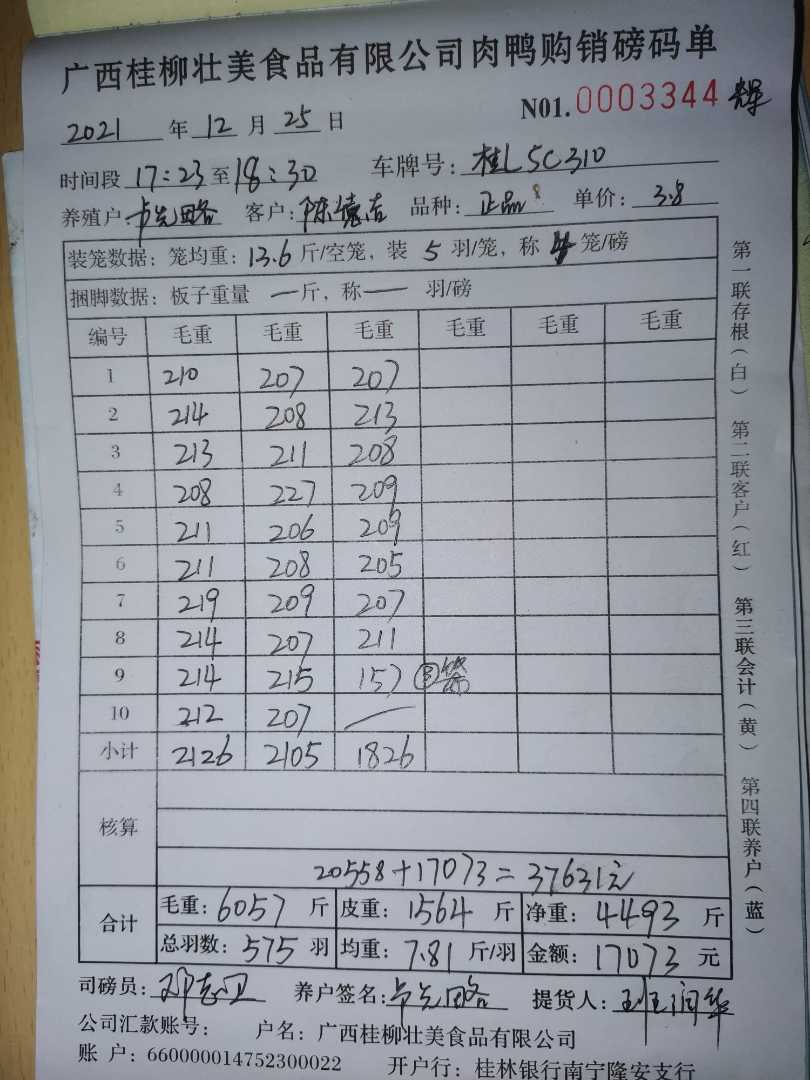 广西桂柳壮美食品有限公司肉鸭购销磅码单
N01.0003344
2021年12月25日
时间段17:23至18:30 车牌号:桂L5C310
养殖户:卢先略 客户:陈德吉 品种:正品 单价:3.8
装笼数据:笼均重:13.6斤/空笼,装5羽/笼,称4笼/磅
捆脚数据:板子重量 一斤,称一 羽/磅
编号 毛重 毛重 毛重 毛重 毛重 毛重
1 210 207 207
2 214 208 213
3 213 211 208
4 208 227 209
5 211 206 209
6 211 208 205
7 219 209 207
8 214 207 211
9 214 215 157 ③
10 212 207 —
小计 2126 2105 1826
核算
20558+17073=37631元
合计
毛重:6057斤 皮重:1564斤 净重:4493斤
总羽数:575羽 均重:7.81斤/羽 金额:17073元
司磅员:邓志卫 养户签名:卢先略 提货人:班润华
公司汇款账号: 户名:广西桂柳壮美食品有限公司
账 户:660000014752300022 开户行:桂林银行南宁隆安支行
第一联存根(白) 第二联客户(红) 第三联会计(黄) 第四联养户(蓝)